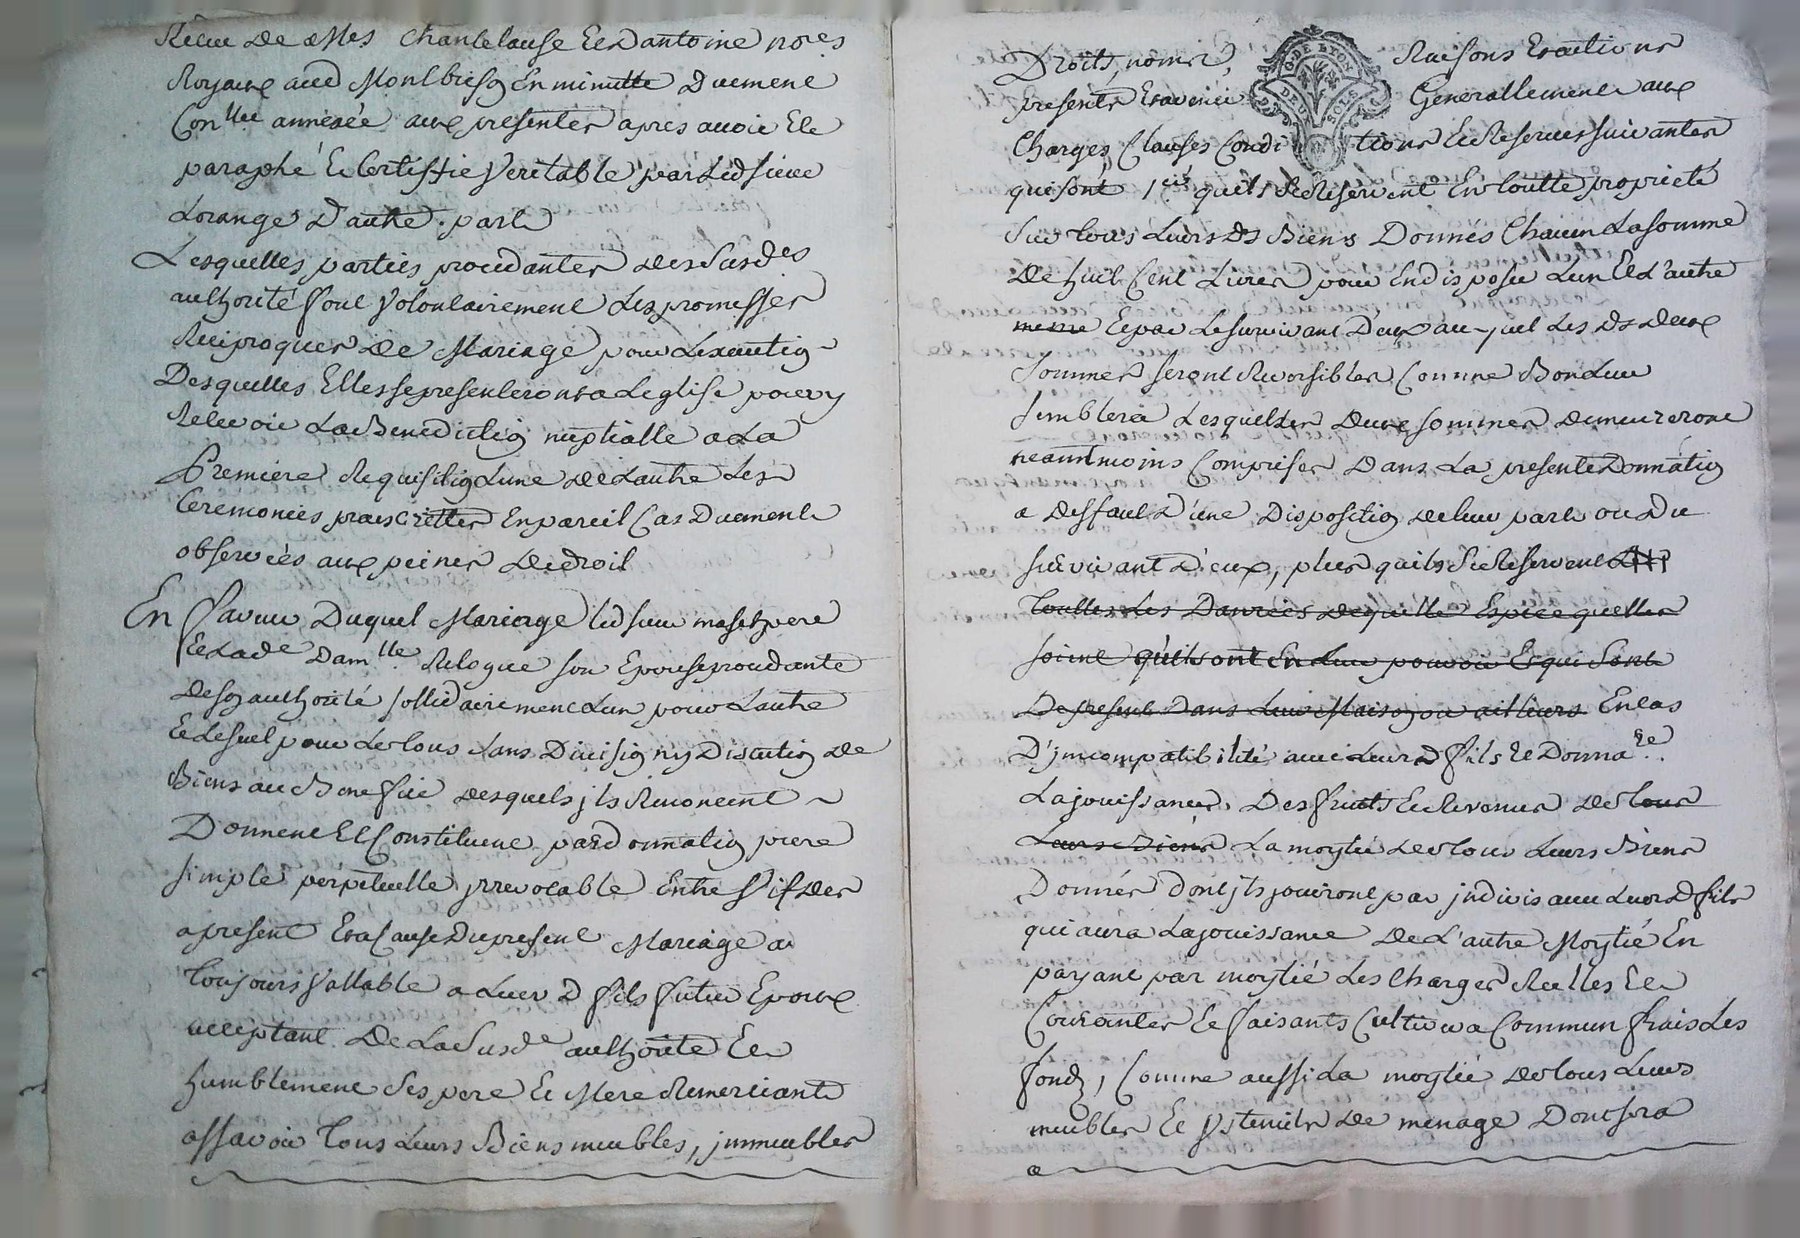 Recue de Mes Chantelause Et Dantoine nores
Royaux aud Montbrison En minutte Duement
Conllee annexée aux presentes apres avoir Ete
paraphé Et Certiffié Veritable par Led sieur
Lorange D'autre part
Lesquelles parties procedantes des susdes
authorité font Volontairement Les promesses
Reciproques De Mariage pour Lexecution
Desquelles Elles se presenteront a Leglise pour y
Recevoir La Benediction nuptialle a La
Premiere Requisition Lune de Lautre Les
Ceremonies prescrittes En pareil Cas Duement
observées aux peines De droit
En faveur Duquel Mariage led sieur maset pere
Et Lade Damlle Reloque son Epouse procedante
De son authorité sollidairement Lun pour Lautre
Et Le seul pour Le tous sans Division ny Discution de
Biens au Benefice desquels jls Renoncent
Donnent Et Constituent par donnation pure
simple perpetuelle jrrevocable Entre Vifs Des
a present Et a Cause Du present Mariage a
toujours Vallable a Leur d fils futur Epoux
acceptant De La Susde authorité Et
humblement Ses pere Et Mere Remerciant
assavoir tous Leurs Biens meubles, jmmeubles
Droits, noms, Raisons Et actions
Presents Et avenir Generallement aux
G. DE LYON
DEUX SOLS
Charges, Clauses Conditions Et Reserves suivantes
qui sont 1ent qu'ils se Reservent En toutte proprieté
Sur tous Leurs ds Biens Donnés Chacun La somme
De huit Cent Livres pour En disposer L'un Et L'autre
meme Et par Le survivant Deux auquel Les ds deux
sommes seront Reversibles Comme Bon Leur
semblera Lesquelles Deux sommes demeureront
neantmoins Comprises Dans La presente Donnation
a deffaut D'une Disposition de leur part ou Du
survivant D'eux, plus quils se Reservent
touttes Les Danrées de quelle Espece quelles
soient qu'ils ont En Leur pouvoir Et qui sont
De present Dans Leur Maison ou ailleurs En cas
D'jncompatibilité avec Leur d fils Et Donnare
La jouissance, Des fruits Et Revenus de tous
Leurs Biens La moytié de tous Leurs Biens
Donnés Dont jls jouiront par jndivis avec Leur d fils
qui aura La jouissance de L'autre Moytié En
payant par moytié Les Charges Reelles Et
Courantes Et faisants Cultiver a Commun frais Les
fonds, Comme aussi La moytié de tous Leurs
meubles Et Ustenciles de menage Dont sera